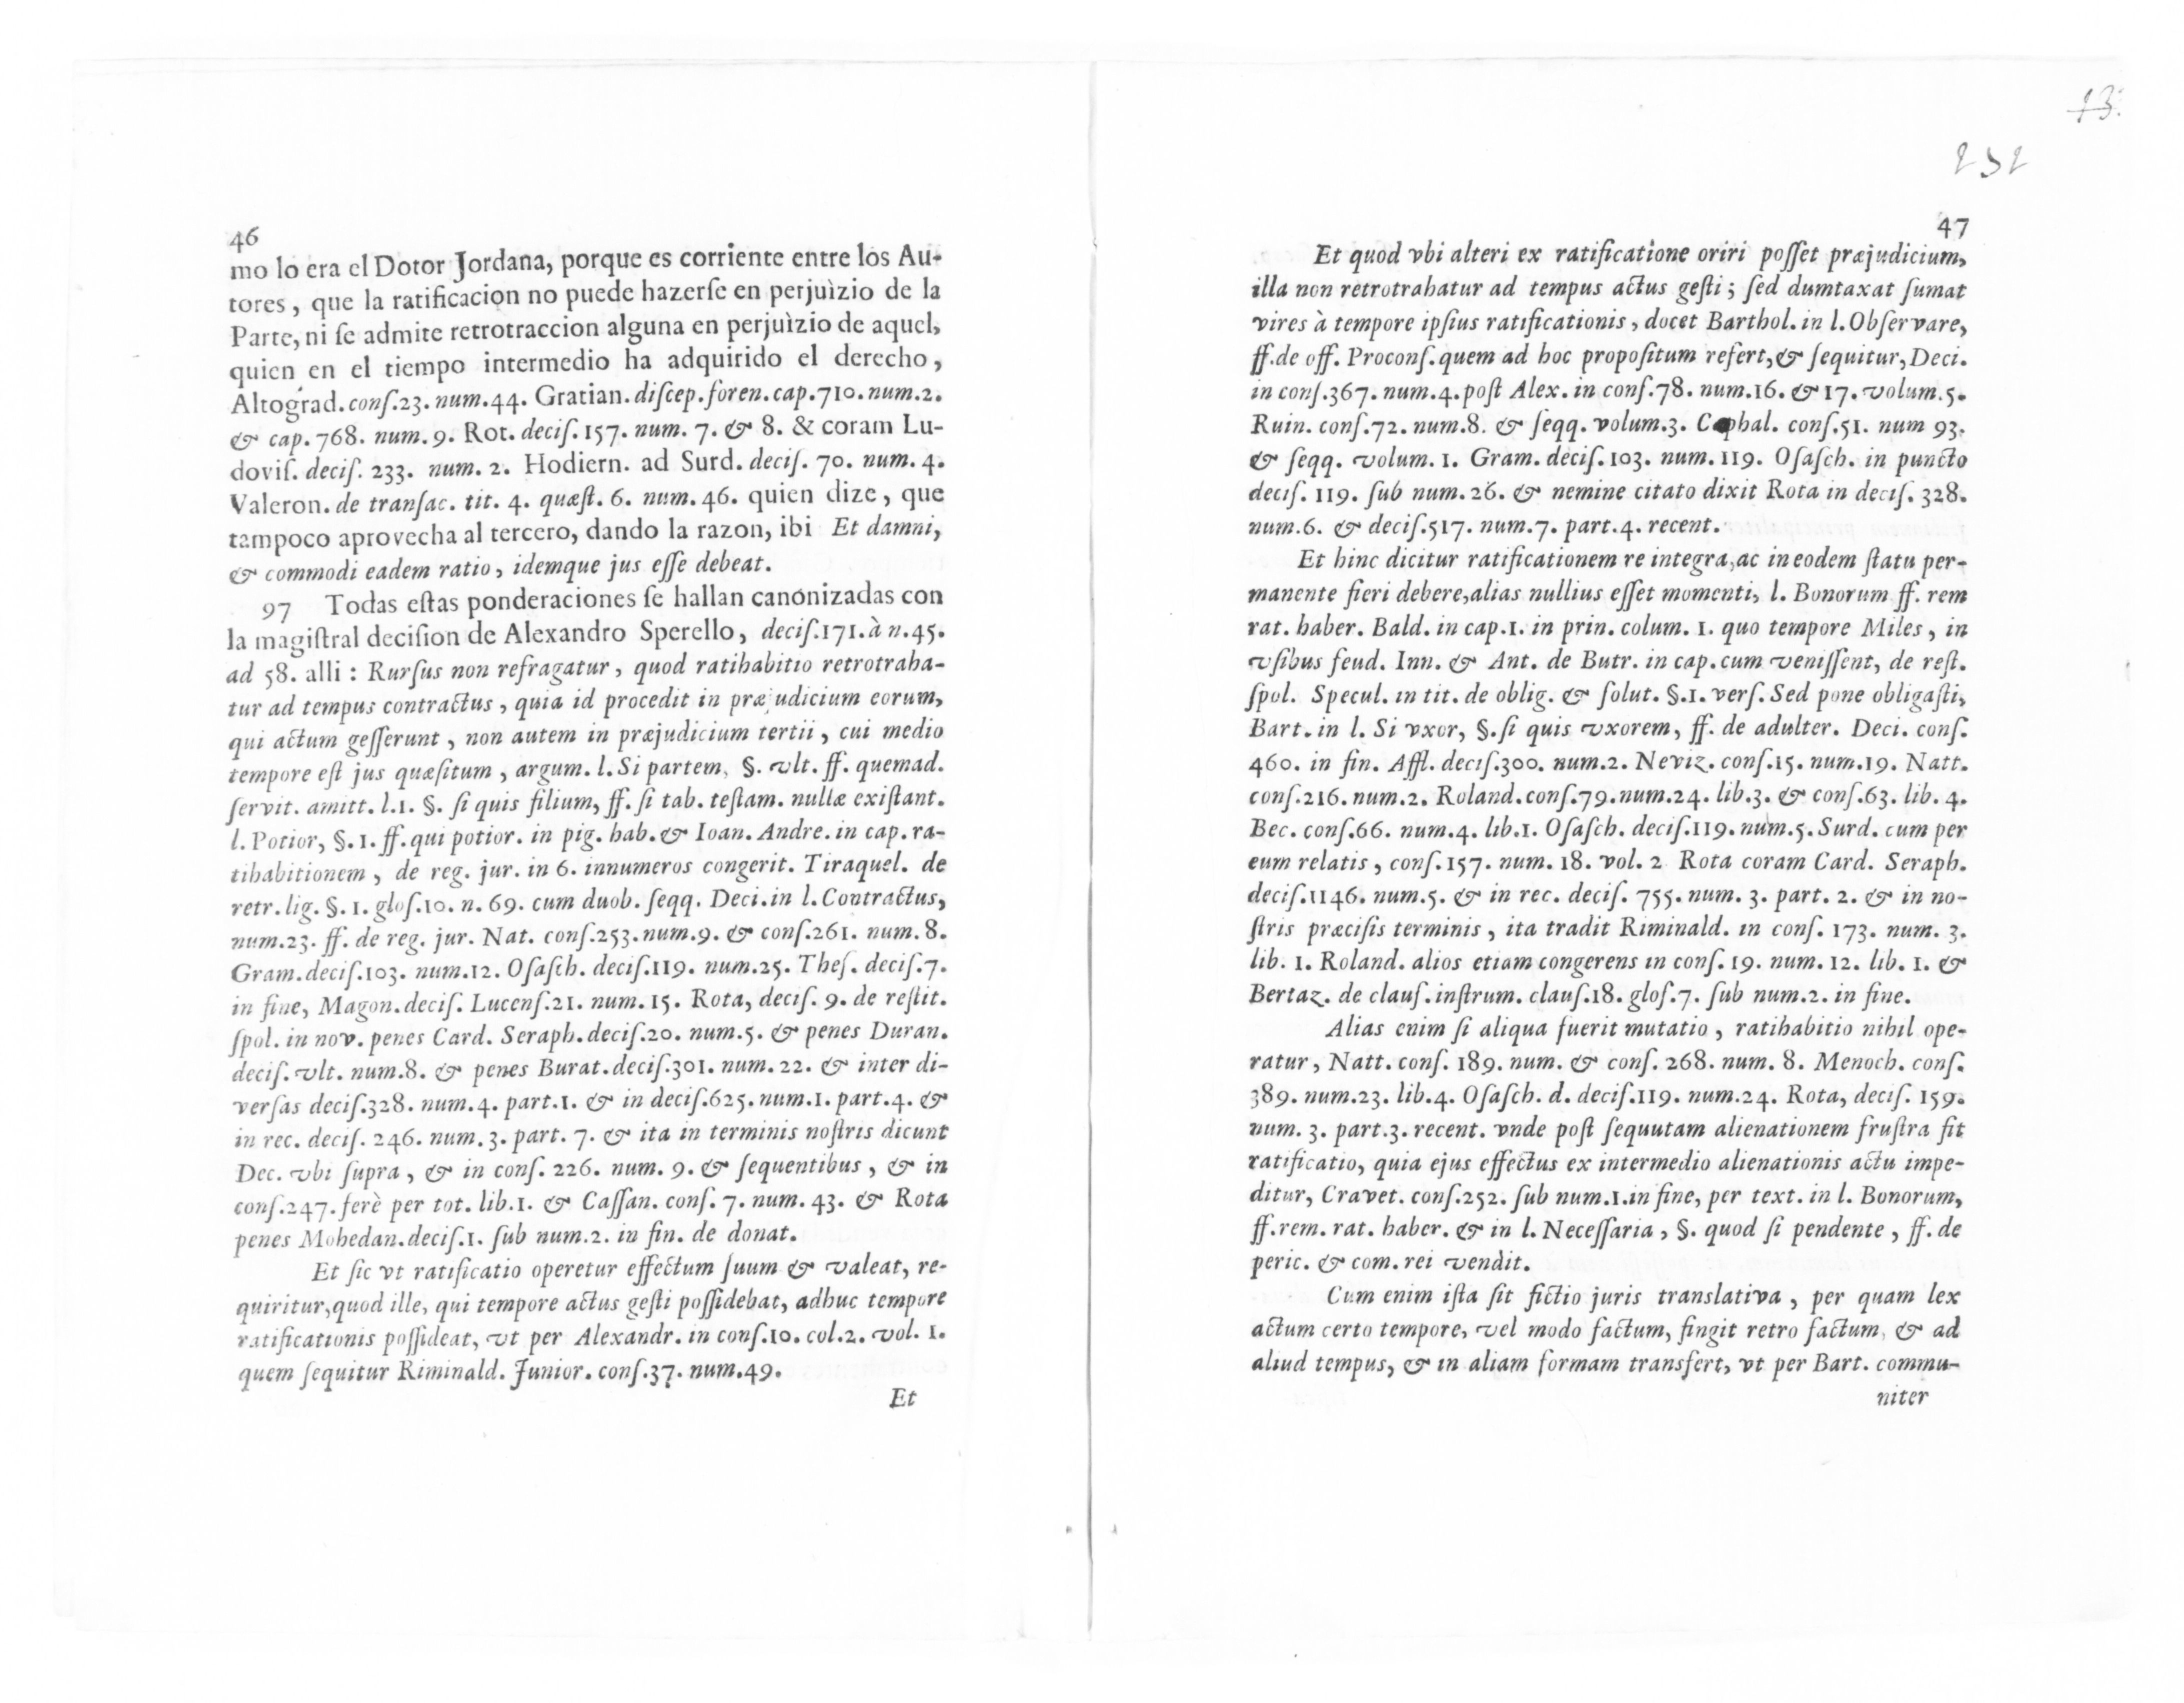 46
mo lo era el Dotor Jordana, porque es corriente entre los Au-
tores, que la ratificacion no puede hazerſe en perjuìzio de la
Parte, ni ſe admite retrotraccion alguna en perjuìzio de aquel,
quien en el tiempo intermedio ha adquirido el derecho,
Altograd. conſ.23. num.44. Gratian. diſcep. foren. cap.710. num.2.
& cap. 768. num. 9. Rot. deciſ. 157. num. 7. & 8. & coram Lu-
doviſ. deciſ. 233. num. 2. Hodiern. ad Surd. deciſ. 70. num. 4.
Valeron. de tranſac. tit. 4. quæſt. 6. num. 46. quien dize, que
tampoco aprovecha al tercero, dando la razon, ibi Et damni,
& commodi eadem ratio, idemque jus eſſe debeat.
97 Todas eſtas ponderaciones ſe hallan canonizadas con
la magiſtral deciſion de Alexandro Sperello, deciſ.171. à n.45.
ad 58. alli : Rurſus non refragatur, quod ratihabitio retrotraha-
tur ad tempus contractus, quia id procedit in præjudicium eorum,
qui actum geſſerunt, non autem in præjudicium tertii, cui medio
tempore eſt jus quæſitum, argum. l. Si partem, §. vlt. ff. quemad.
ſervit. amitt. l.1. §. ſi quis filium, ff. ſi tab. teſtam. nullæ exiſtant.
l. Potior, §. 1. ff. qui potior. in pig. hab. & Ioan. Andre. in cap. ra-
tihabitionem, de reg. jur. in 6. innumeros congerit. Tiraquel. de
retr. lig. §. 1. gloſ.10. n. 69. cum duob. ſeqq. Deci. in l. Contractus,
num.23. ff. de reg. jur. Nat. conſ.253. num.9. & conſ.261. num. 8.
Gram. deciſ.103. num.12. Oſaſch. deciſ.119. num.25. Theſ. deciſ.7.
in fine, Magon. deciſ. Lucenſ.21. num. 15. Rota, deciſ. 9. de reſtit.
ſpol. in nov. penes Card. Seraph. deciſ.20. num.5. & penes Duran.
deciſ. vlt. num.8. & penes Burat. deciſ.301. num. 22. & inter di-
verſas deciſ.328. num.4. part.1. & in deciſ.625. num.1. part.4. &
in rec. deciſ. 246. num. 3. part. 7. & ita in terminis noſtris dicunt
Dec. vbi ſupra, & in conſ. 226. num. 9. & ſequentibus, & in
conſ.247. ferè per tot. lib.1. & Caſſan. conſ. 7. num. 43. & Rota
penes Mohedan. deciſ.1. ſub num.2. in fin. de donat.
Et ſic vt ratificatio operetur effectum ſuum & valeat, re-
quiritur, quod ille, qui tempore actus geſti poſſidebat, adhuc tempore
ratificationis poſſideat, vt per Alexandr. in conſ.10. col.2. vol. 1.
quem ſequitur Riminald. Junior. conſ.37. num.49.
Et
13.
232
47
Et quod vbi alteri ex ratificatione oriri poſſet præjudicium,
illa non retrotrahatur ad tempus actus geſti; ſed dumtaxat ſumat
vires à tempore ipſius ratificationis, docet Barthol. in l. Obſervare,
ff. de off. Proconſ. quem ad hoc propoſitum refert, & ſequitur, Deci.
in conſ.367. num.4. poſt Alex. in conſ.78. num.16. & 17. volum.5.
Ruin. conſ.72. num.8. & ſeqq. volum.3. Cephal. conſ.51. num 93.
& ſeqq. volum. 1. Gram. deciſ.103. num.119. Oſaſch. in puncto
deciſ. 119. ſub num.26. & nemine citato dixit Rota in deciſ. 328.
num.6. & deciſ.517. num.7. part.4. recent.
Et hinc dicitur ratificationem re integra, ac in eodem ſtatu per-
manente fieri debere, alias nullius eſſet momenti, l. Bonorum ff. rem
rat. haber. Bald. in cap.1. in prin. colum. 1. quo tempore Miles, in
vſibus feud. Inn. & Ant. de Butr. in cap. cum veniſſent, de reſt.
ſpol. Specul. in tit. de oblig. & ſolut. §.1. verſ. Sed pone obligaſti,
Bart. in l. Si vxor, §. ſi quis vxorem, ff. de adulter. Deci. conſ.
460. in fin. Affl. deciſ.300. num.2. Neviz. conſ.15. num.19. Natt.
conſ.216. num.2. Roland. conſ.79. num.24. lib.3. & conſ.63. lib. 4.
Bec. conſ.66. num.4. lib.1. Oſaſch. deciſ.119. num.5. Surd. cum per
eum relatis, conſ.157. num. 18. vol. 2 Rota coram Card. Seraph.
deciſ.1146. num.5. & in rec. deciſ. 755. num. 3. part. 2. & in no-
ſtris præciſis terminis, ita tradit Riminald. in conſ. 173. num. 3.
lib. 1. Roland. alios etiam congerens in conſ. 19. num. 12. lib. 1. &
Bertaz. de clauſ. inſtrum. clauſ.18. gloſ.7. ſub num.2. in fine.
Alias enim ſi aliqua fuerit mutatio, ratihabitio nihil ope-
ratur, Natt. conſ. 189. num. & conſ. 268. num. 8. Menoch. conſ.
389. num.23. lib.4. Oſaſch. d. deciſ.119. num.24. Rota, deciſ. 159.
num. 3. part.3. recent. vnde poſt ſequutam alienationem fruſtra fit
ratificatio, quia ejus effectus ex intermedio alienationis actu impe-
ditur, Cravet. conſ.252. ſub num.1. in fine, per text. in l. Bonorum,
ff. rem. rat. haber. & in l. Neceſſaria, §. quod ſi pendente, ff. de
peric. & com. rei vendit.
Cum enim iſta ſit fictio juris translativa, per quam lex
actum certo tempore, vel modo factum, fingit retro factum, & ad
aliud tempus, & in aliam formam transfert, vt per Bart. commu-
niter